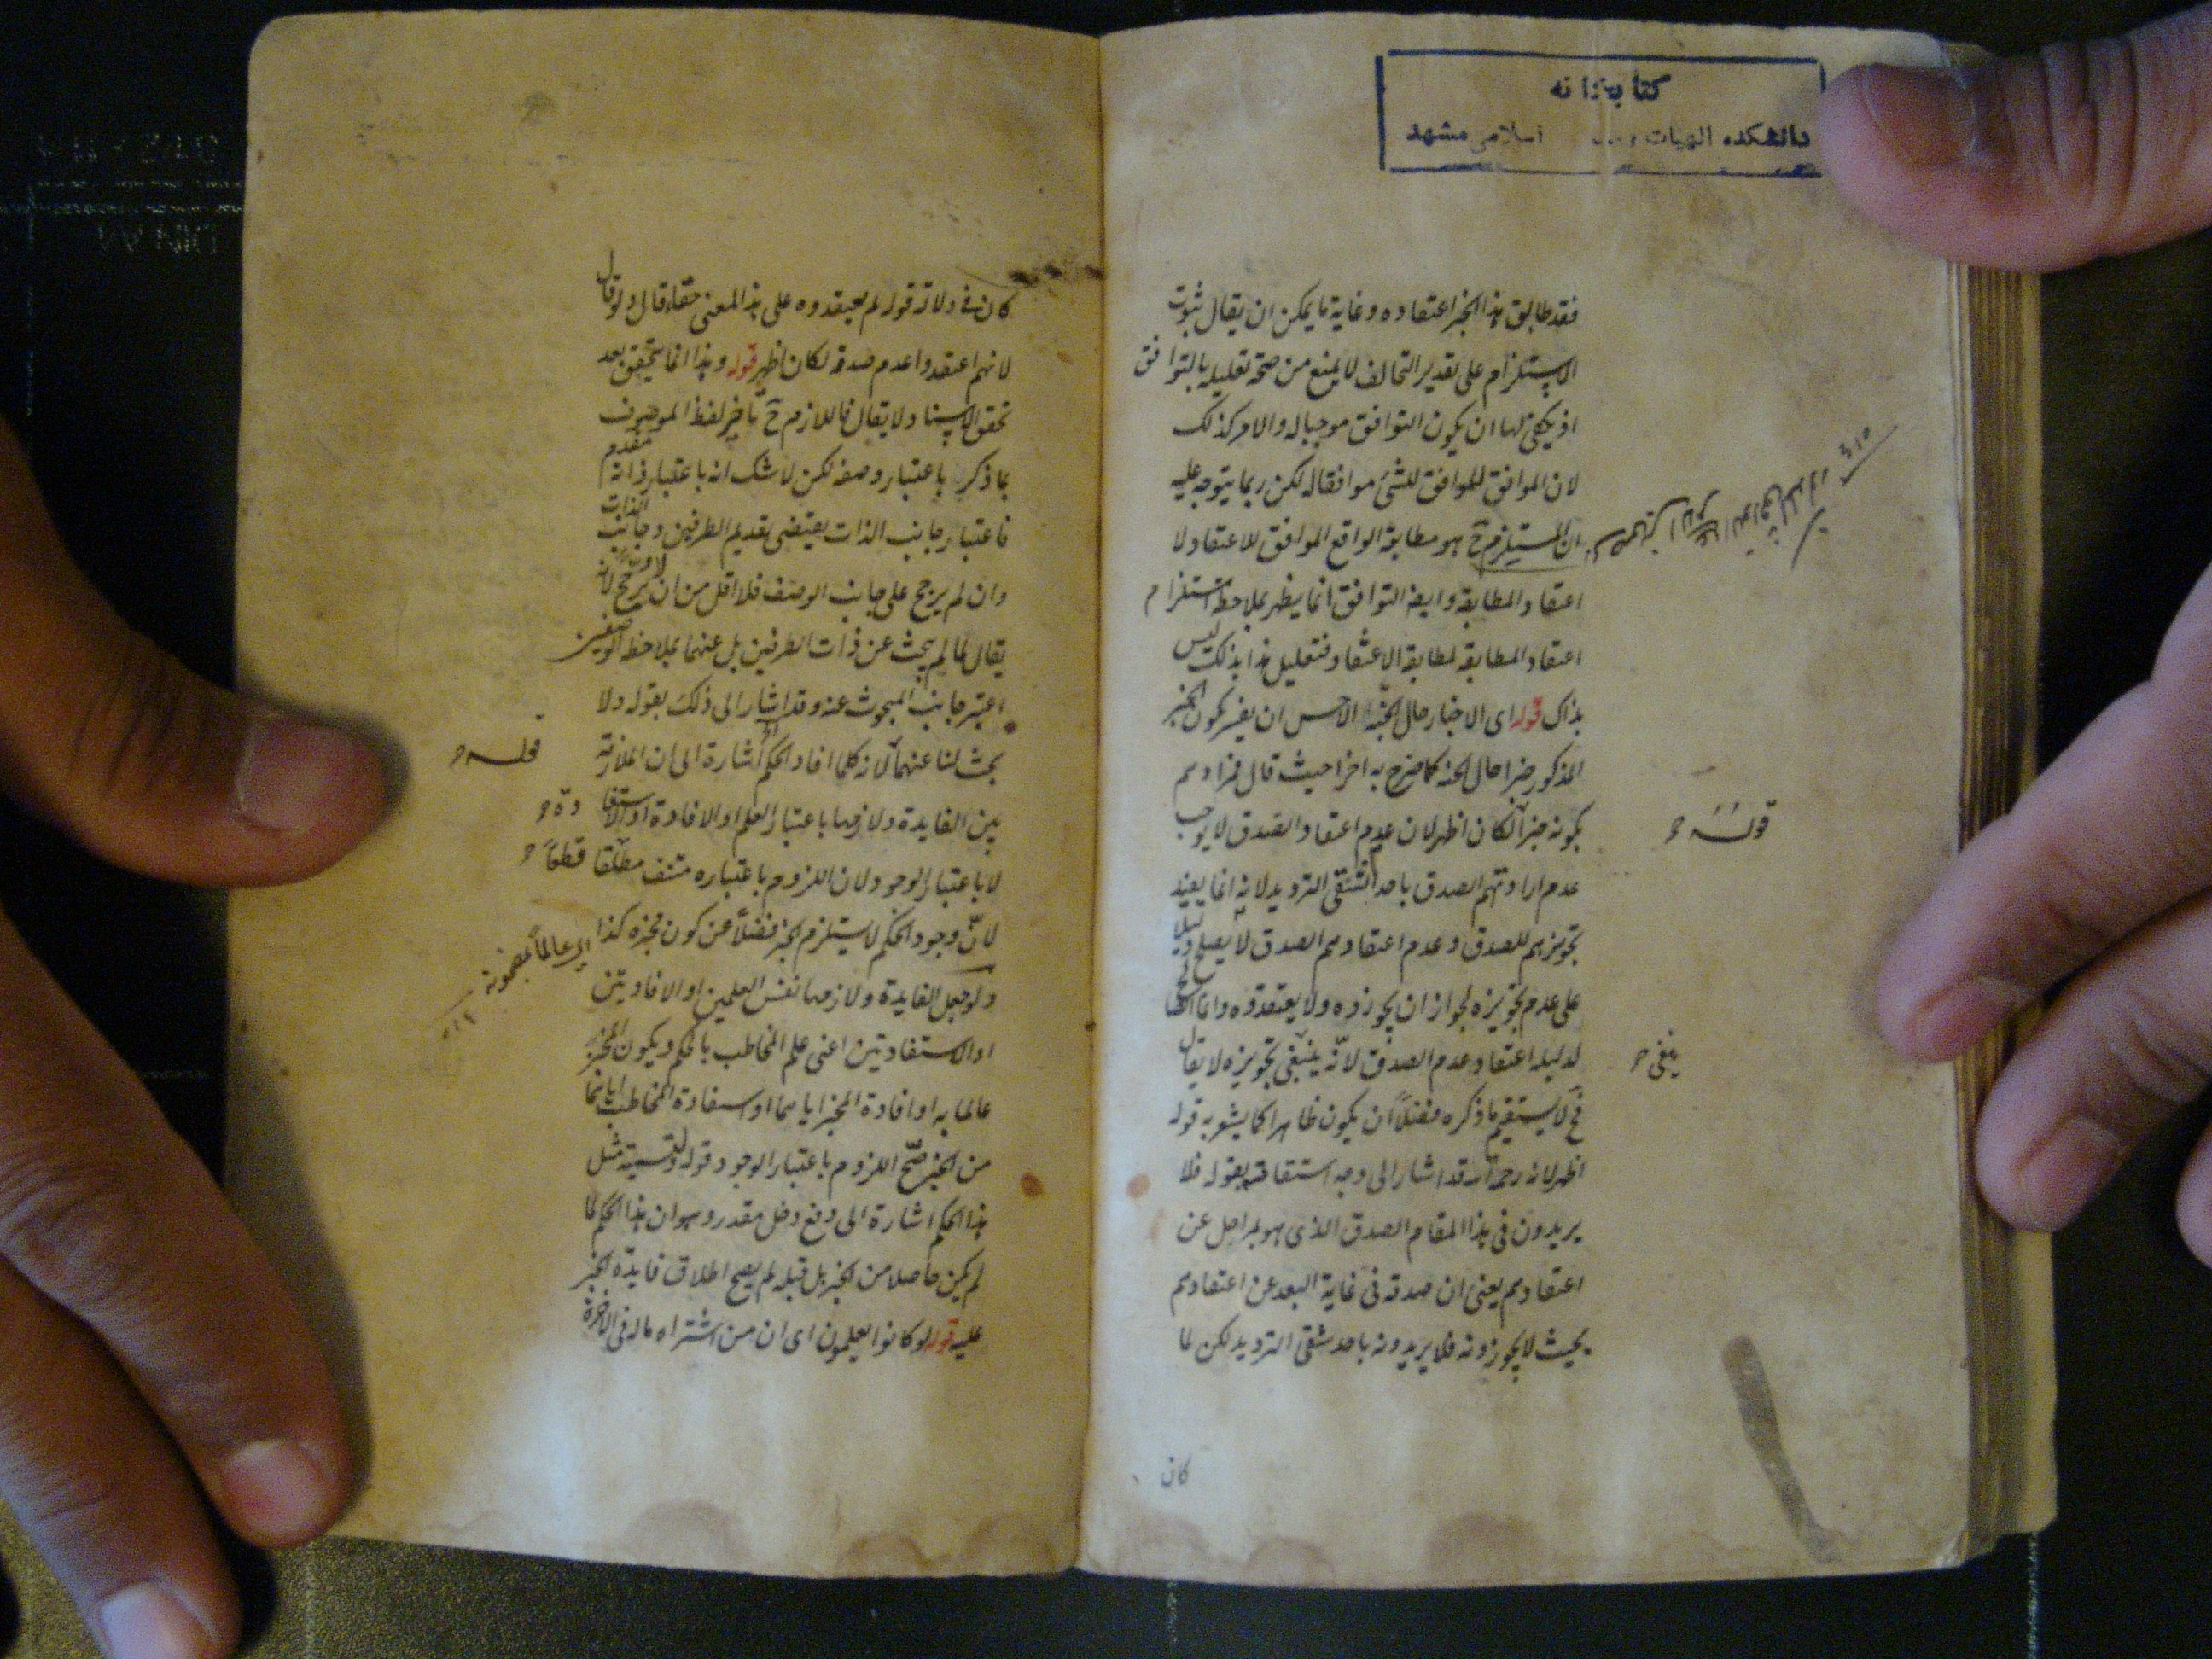 كتابخانه
دانشكده الهيات اسلامى مشهد
فقد طابق هذا الخبر اعتقاده وغاية ما يمكن ان يقال ثبوت
الاستلزام على تقدير التخالف لا يمنع من صحة تعليله بالتوافق
اذ يكفى لها ان يكون التوافق موجبا له والامر كذلك
لان الموافق للموافق للشئ موافقا له لكن ربما يتوجه عليه
ان المستلزم ح هو مطابقة الواقع الموافق للاعتقاد لا
اعتقاد المطابقة وايضا التوافق انما يظهر بملاحظة استلزام
اعتقاد المطابقة لمطابقة الاعتقاد فتعليل هذا بذلك ليس
بذاك قوله اى الاخبار حال الجنة الاحسن ان يفسر بكون الخبر
المذكور خبرا حال الجنه كما صرح به اخرا حيث قال فمرادهم
بكونه خبرا لكان اظهر لان عدم اعتقاد الصدق لا يوجب
قوله
عدم ارادتهم الصدق باحد شقى الترديد لانه انما يفيد
تجويزهم للصدق وعدم اعتقادهم الصدق لا يصلح دليلا
على عدم تجويزه لجواز ان يجوزوه ولا يعتقدوه وانما
لدليله اعتقاد عدم الصدق لانه ينبغى تجويزه لا يقال
ينفى
فح لا يستقيم ما ذكره فضلا ان يكون ظاهرا كما يشعر به قوله
اظهر لانه رحمه الله قد اشار الى وجه استقامته بقوله فلا
يريدون فى هذا المقام الصدق الذى هو بمراحل عن
اعتقادهم يعنى ان صدقه فى غاية البعد عن اعتقادهم
بحيث لا يجوزونه فلا يريدونه باحد شقى الترديد لكن لما
كان
كان فى دلالة قوله لم يعتقدوه على هذا المعنى خفاء قال ولو قال
لانهم اعتقدوا عدم صدقه لكان اظهر قوله وهذا انما يتحقق بعد
تحقق الاسناد ولا يقال فاللازم ح تاخر لفظ الموصوف
بما ذكر باعتبار وصفه لكن لا شك انه باعتبار ذاته مقدم
فاعتبار جانب الذات يقتضى تقديم الطرفين وجانب الذات
وان لم يرجح على جانب الوصف فلا اقل من ان يرجح لانه
يقال لما لم يبحث عن ذات الطرفين بل عنهما بملاحظة الوصفين
اعتبر جانب المبحوث عنه وقد اشار الى ذلك بقوله ولا
بحث لنا عنهما لانه كلما افاد الحكم اشارة الى ان الملازمة
قوله
بين الفايدة ولازمها باعتبار العلم او الافادة او الاستفادة
لا باعتبار الوجود لان اللزوم باعتباره منتف مطلقا قطعا
لان وجود الحكم لا يستلزم الخبر فضلا عن كون مخبره كذا
اى عالما بمضمونه
ولو جعل الفايدة ولازمها نفس العلمين او الافادتين
او الاستفادتين اعنى علم المخاطب بالحكم وبكون المخبر
عالما به او افادة المخبر اياهما او استفادة المخاطب اياهما
من الخبر صح اللزوم باعتبار الوجود قوله وتسمية مثل
هذا الحكم اشارة الى دفع دخل مقدر وهو ان هذا الحكم لما
لم يكن حاصلا من الخبر بل قبله لم يصح اطلاق فايدة الخبر
عليه قوله لو كانوا يعلمون اى ان من اشتراه ماله فى الاخرة